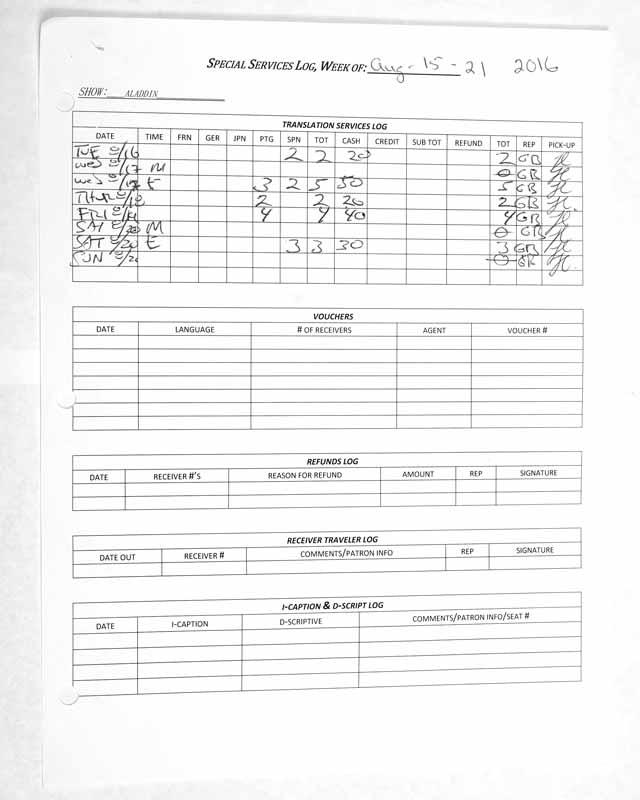 SPECIAL SERVICES LOG, WEEK OF: Aug - 15 - 21 2016
SHOW: ALADDIN
TRANSLATION SERVICES LOG
DATE TIME FRN GER JPN PTG SPN TOT CASH CREDIT SUB TOT REFUND TOT REP PICK-UP
TUE 8/16 2 2 20 2 GB
WED 8/17 M 0 GB
WED 8/17 E 3 2 5 50 5 GB
THUR 8/18 2 2 20 2 GB
FRI 8/19 4 4 40 4 GB
SAT 8/20 M 0 GB
SAT 8/20 E 3 3 30 3 GB
SUN 0 GB
VOUCHERS
DATE LANGUAGE # OF RECEIVERS AGENT VOUCHER #
REFUNDS LOG
DATE RECEIVER #'S REASON FOR REFUND AMOUNT REP SIGNATURE
RECEIVER TRAVELER LOG
DATE OUT RECEIVER # COMMENTS/PATRON INFO REP SIGNATURE
I-CAPTION & D-SCRIPT LOG
DATE I-CAPTION D-SCRIPTIVE COMMENTS/PATRON INFO/SEAT #